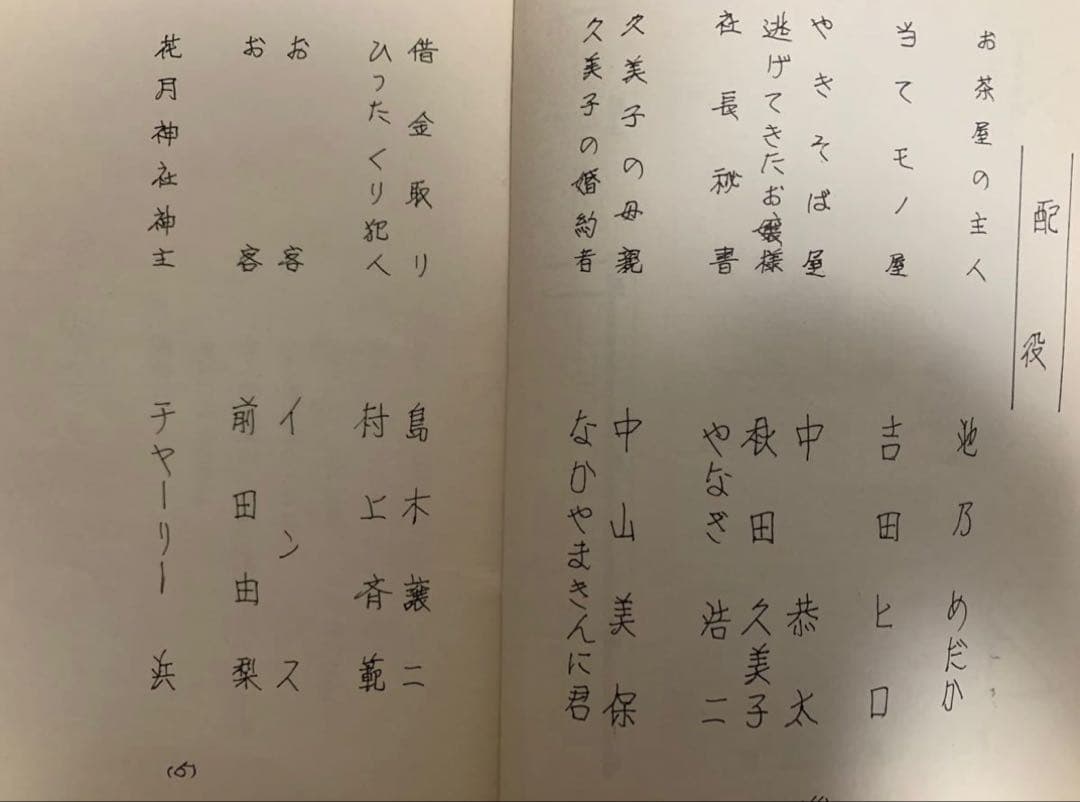 配役
お茶屋の主人 池乃めだか
当てモノ屋 吉田ヒロ
やきそば屋 中恭太
逃げてきたお嬢様 秋田久美子
社長秘書 やなぎ浩二
久美子の母親 中山美保
久美子の婚約者 なかやまきんに君
借金取り 島木譲二
ひったくり犯人 村上斉範
お客 インス
お客 前田由梨
花月神社神主 チャーリー浜
(5)